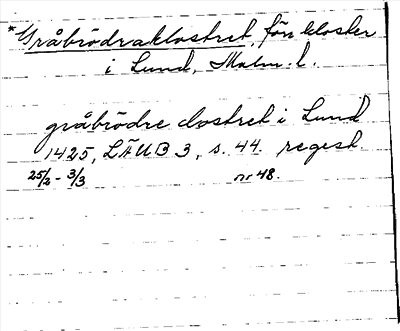 *Gråbrödraklostret, förr kloster
i Lund, Malm. l.
gråbrödre clostret i Lund
1425, LÄUB 3, s. 44. regest.
25/2 - 3/3 nr 48.